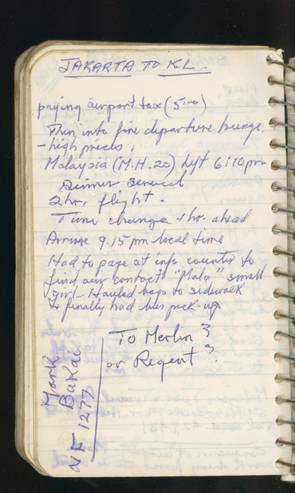 JAKARTA TO KL.
paying airport tax (5⁰⁰)
Then into fine departure lounge,
- high priced,
Malaysia (M.H. 20) left 6:10 pm
Dinner served
2 hr. flight -
Time change + hr. ahead
Arrive 9.15 pm local time
Had to page at info counter to
find our contact "Mala" small
girl - Hauled bags to sidewalk
& finally had bus pick-up
To Merlin ?
or Regent ?
Mark
BaKac
NF 1277